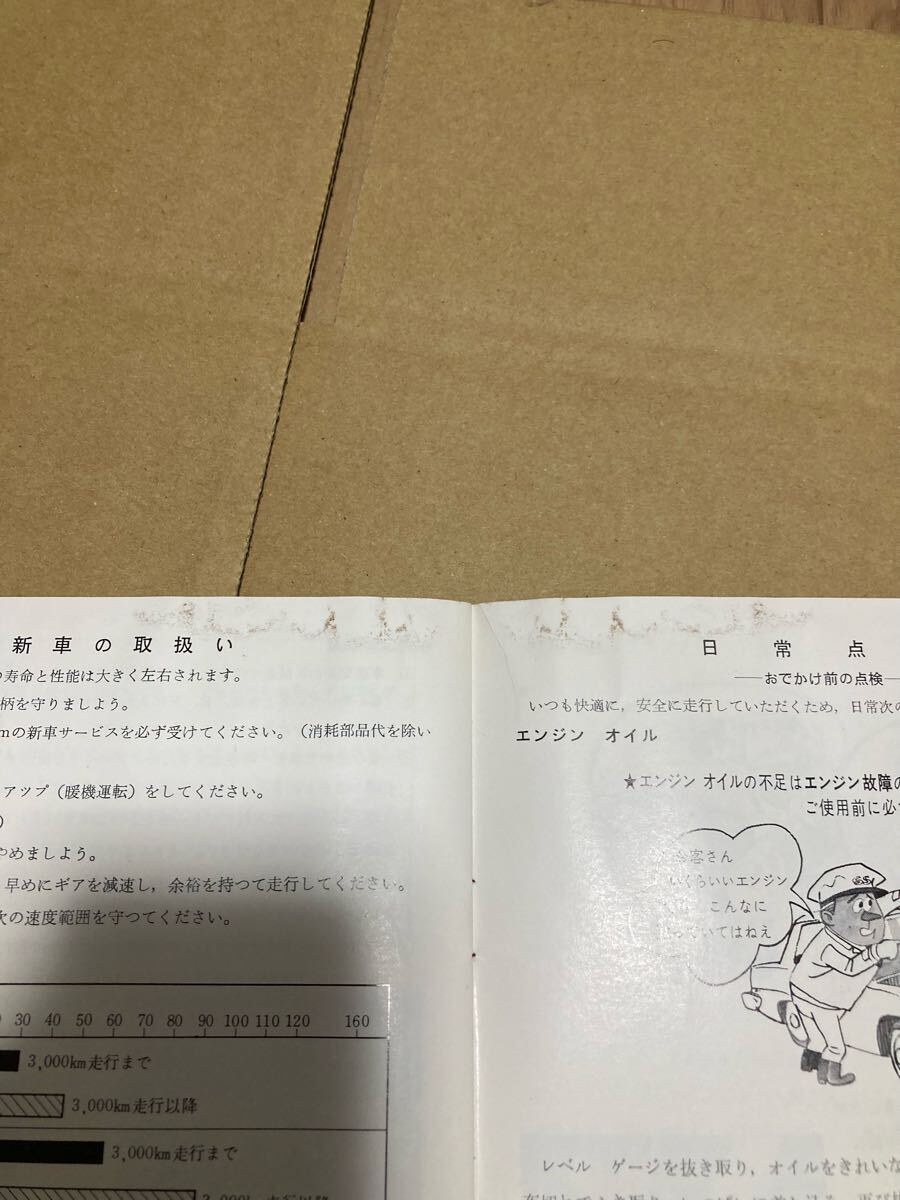 新車の取扱い
寿命と性能は大きく左右されます。
柄を守りましょう。
mの新車サービスを必ず受けてください。(消耗部品代を除い
アップ(暖機運転)をしてください。
)
やめましょう。
早めにギアを減速し,余裕を持つて走行してください。
次の速度範囲を守つてください。
30 40 50 60 70 80 90 100 110 120 160
3,000km走行まで
3,000km走行以降
3,000km走行まで
日常点
──おでかけ前の点検─
いつも快適に,安全に走行していただくため,日常次の
エンジン オイル
★エンジン オイルの不足はエンジン故障の
ご使用前に必
客さん
いくらいいエンジン
こんなに
いてはねえ
レベル ゲージを抜き取り,オイルをきれいな